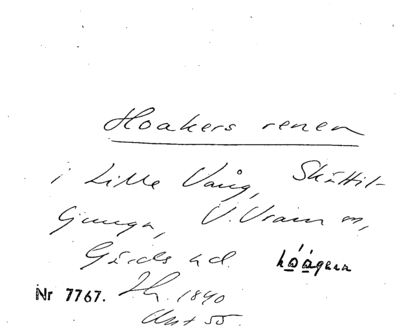 Hoakers renen
i Lille Vång, Skättil-
ljunga, V. Vram sn,
Gärds hd. hǫ́ǫ́gara
Nr 7767. 1840
Akt 55.